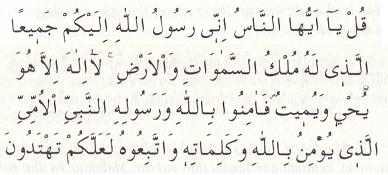 قُلْ يَٓا اَيُّهَا النَّاسُ اِنّ۪ي رَسُولُ اللّٰهِ اِلَيْكُمْ جَم۪يعًا
الَّذ۪ي لَهُ مُلْكُ السَّمٰوَاتِ وَالْاَرْضِۚ لَٓا اِلٰهَ اِلَّا هُوَ
يُحْي۪ وَيُم۪يتُۖ فَاٰمِنُوا بِاللّٰهِ وَرَسُولِهِ النَّبِيِّ الْاُمِّيِّ
الَّذ۪ي يُؤْمِنُ بِاللّٰهِ وَكَلِمَاتِه۪ وَاتَّبِعُوهُ لَعَلَّكُمْ تَهْتَدُونَ